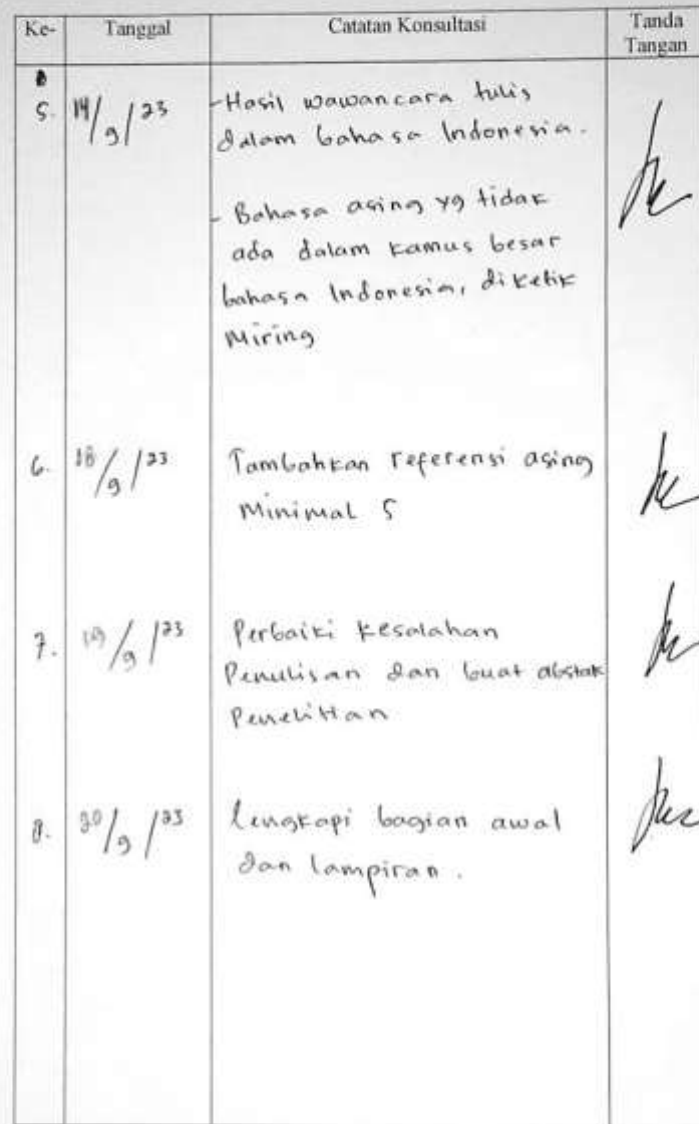 Ke- Tanggal Catatan Konsultasi Tanda Tangan
5. 14/9/23 - Hasil wawancara tulis
dalam bahasa Indonesia.
- Bahasa asing yg tidak
ada dalam kamus besar
bahasa Indonesia, diketik
Miring
6. 18/9/23 Tambahkan referensi asing
Minimal 5
7. 19/9/23 Perbaiki kesalahan
Penulisan dan buat abstak
Penelitian
8. 20/9/23 lengkapi bagian awal
dan lampiran.